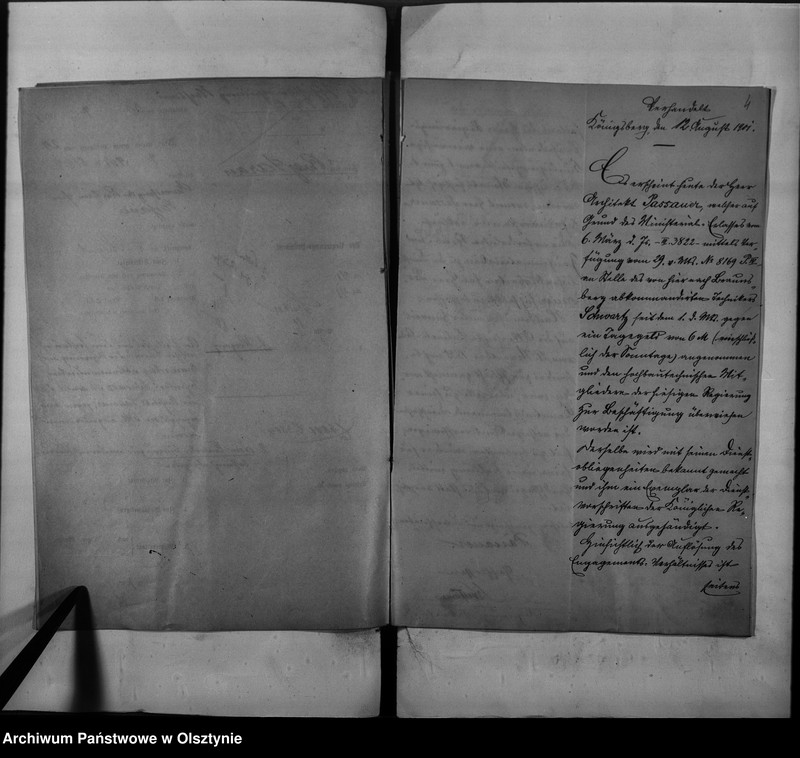 4
Verhandelt
Königsberg, den 12. August 1901.
Es erscheint heute der Herr
Architekt Passauer, welcher auf
Grund des Ministerial-Erlasses vom
6. März d. Js. 3822 mittels Ver-
fügung vom 29. v. Mts. № 8169
an Stelle des von hier nach Brauns-
berg abkommandirten Technikers
Schwartz seit dem 1. d. Mts. gegen
ein Tagegeld von 6 M (einschließ-
lich der Sonntage) angenommen
und den hochbautechnischen Mit-
gliedern der hiesigen Regierung
zur Beschäftigung überwiesen
worden ist.
Derselbe wird mit seinen Dienst-
obliegenheiten bekannt gemacht
und ihm ein Exemplar der Dienst-
vorschriften der Königlichen Re-
gierung ausgehändigt.
Hinsichtlich der Auflösung des
Engagements-Verhältnisses ist
beiden
Archiwum Państwowe w Olsztynie